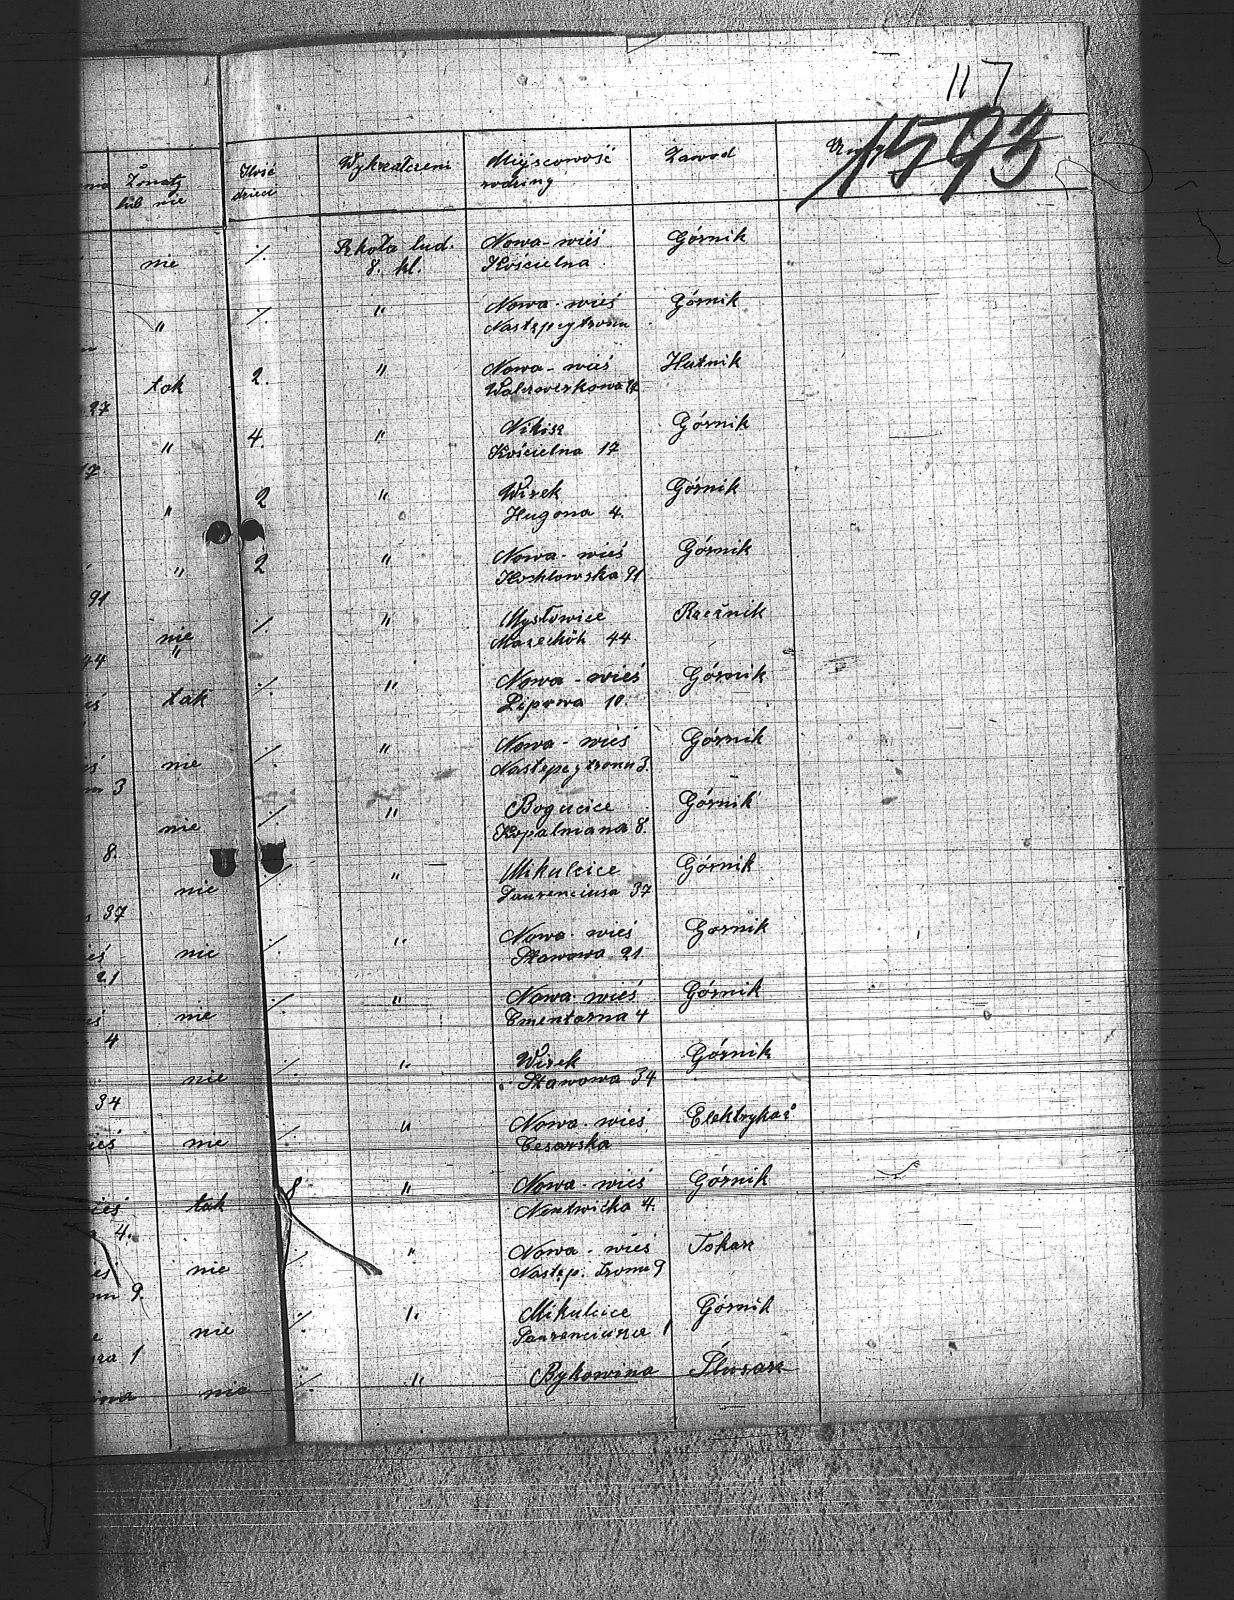 117
1593
Żonaty lub nie Ilość dzieci Wykształceni Miejscowość rodziny Zawod
nie ·/. Szkoła lud. 8. kl. Nowa-wieś Kościelna Górnik
" ·/. " Nowa-wieś Następcytronu Górnik
27 tak 2. " Nowa-wieś Hutnik
17 " 4. " Kościelna 17 Górnik
" 2 " Wirek Hugona 4. Górnik
91 " 2 " Nowa-wieś Kochłowska 91 Górnik
44 nie " /. " Mysłowice 44 Górnik
tak ·/. " Nowa-wieś Lipowa 10. Górnik
3 nie /. " Nowa-wieś Następcytronu 3. Górnik
8. nie /. " Bogucice Kopalniana 8. Górnik
37 nie / " Mikulcice Laurenciusa 37 Górnik
21 nie ·/. " Nowa-wieś Stawowa 21. Gornik
4 nie ·/. " Nowa-wieś Cmentarna 4 Górnik
34 nie ·/. " Wirek Stawowa 34 Górnik
nie / " Nowa-wieś Cesarska
4. tak 8 " Nowa-wieś 4. Górnik
9. nie / " Nowa-wieś Następ. tronu 9 Tokarz
1 nie ·/. " Mikulcice 1 Górnik
nie ·/. " Bykowina Ślusarz